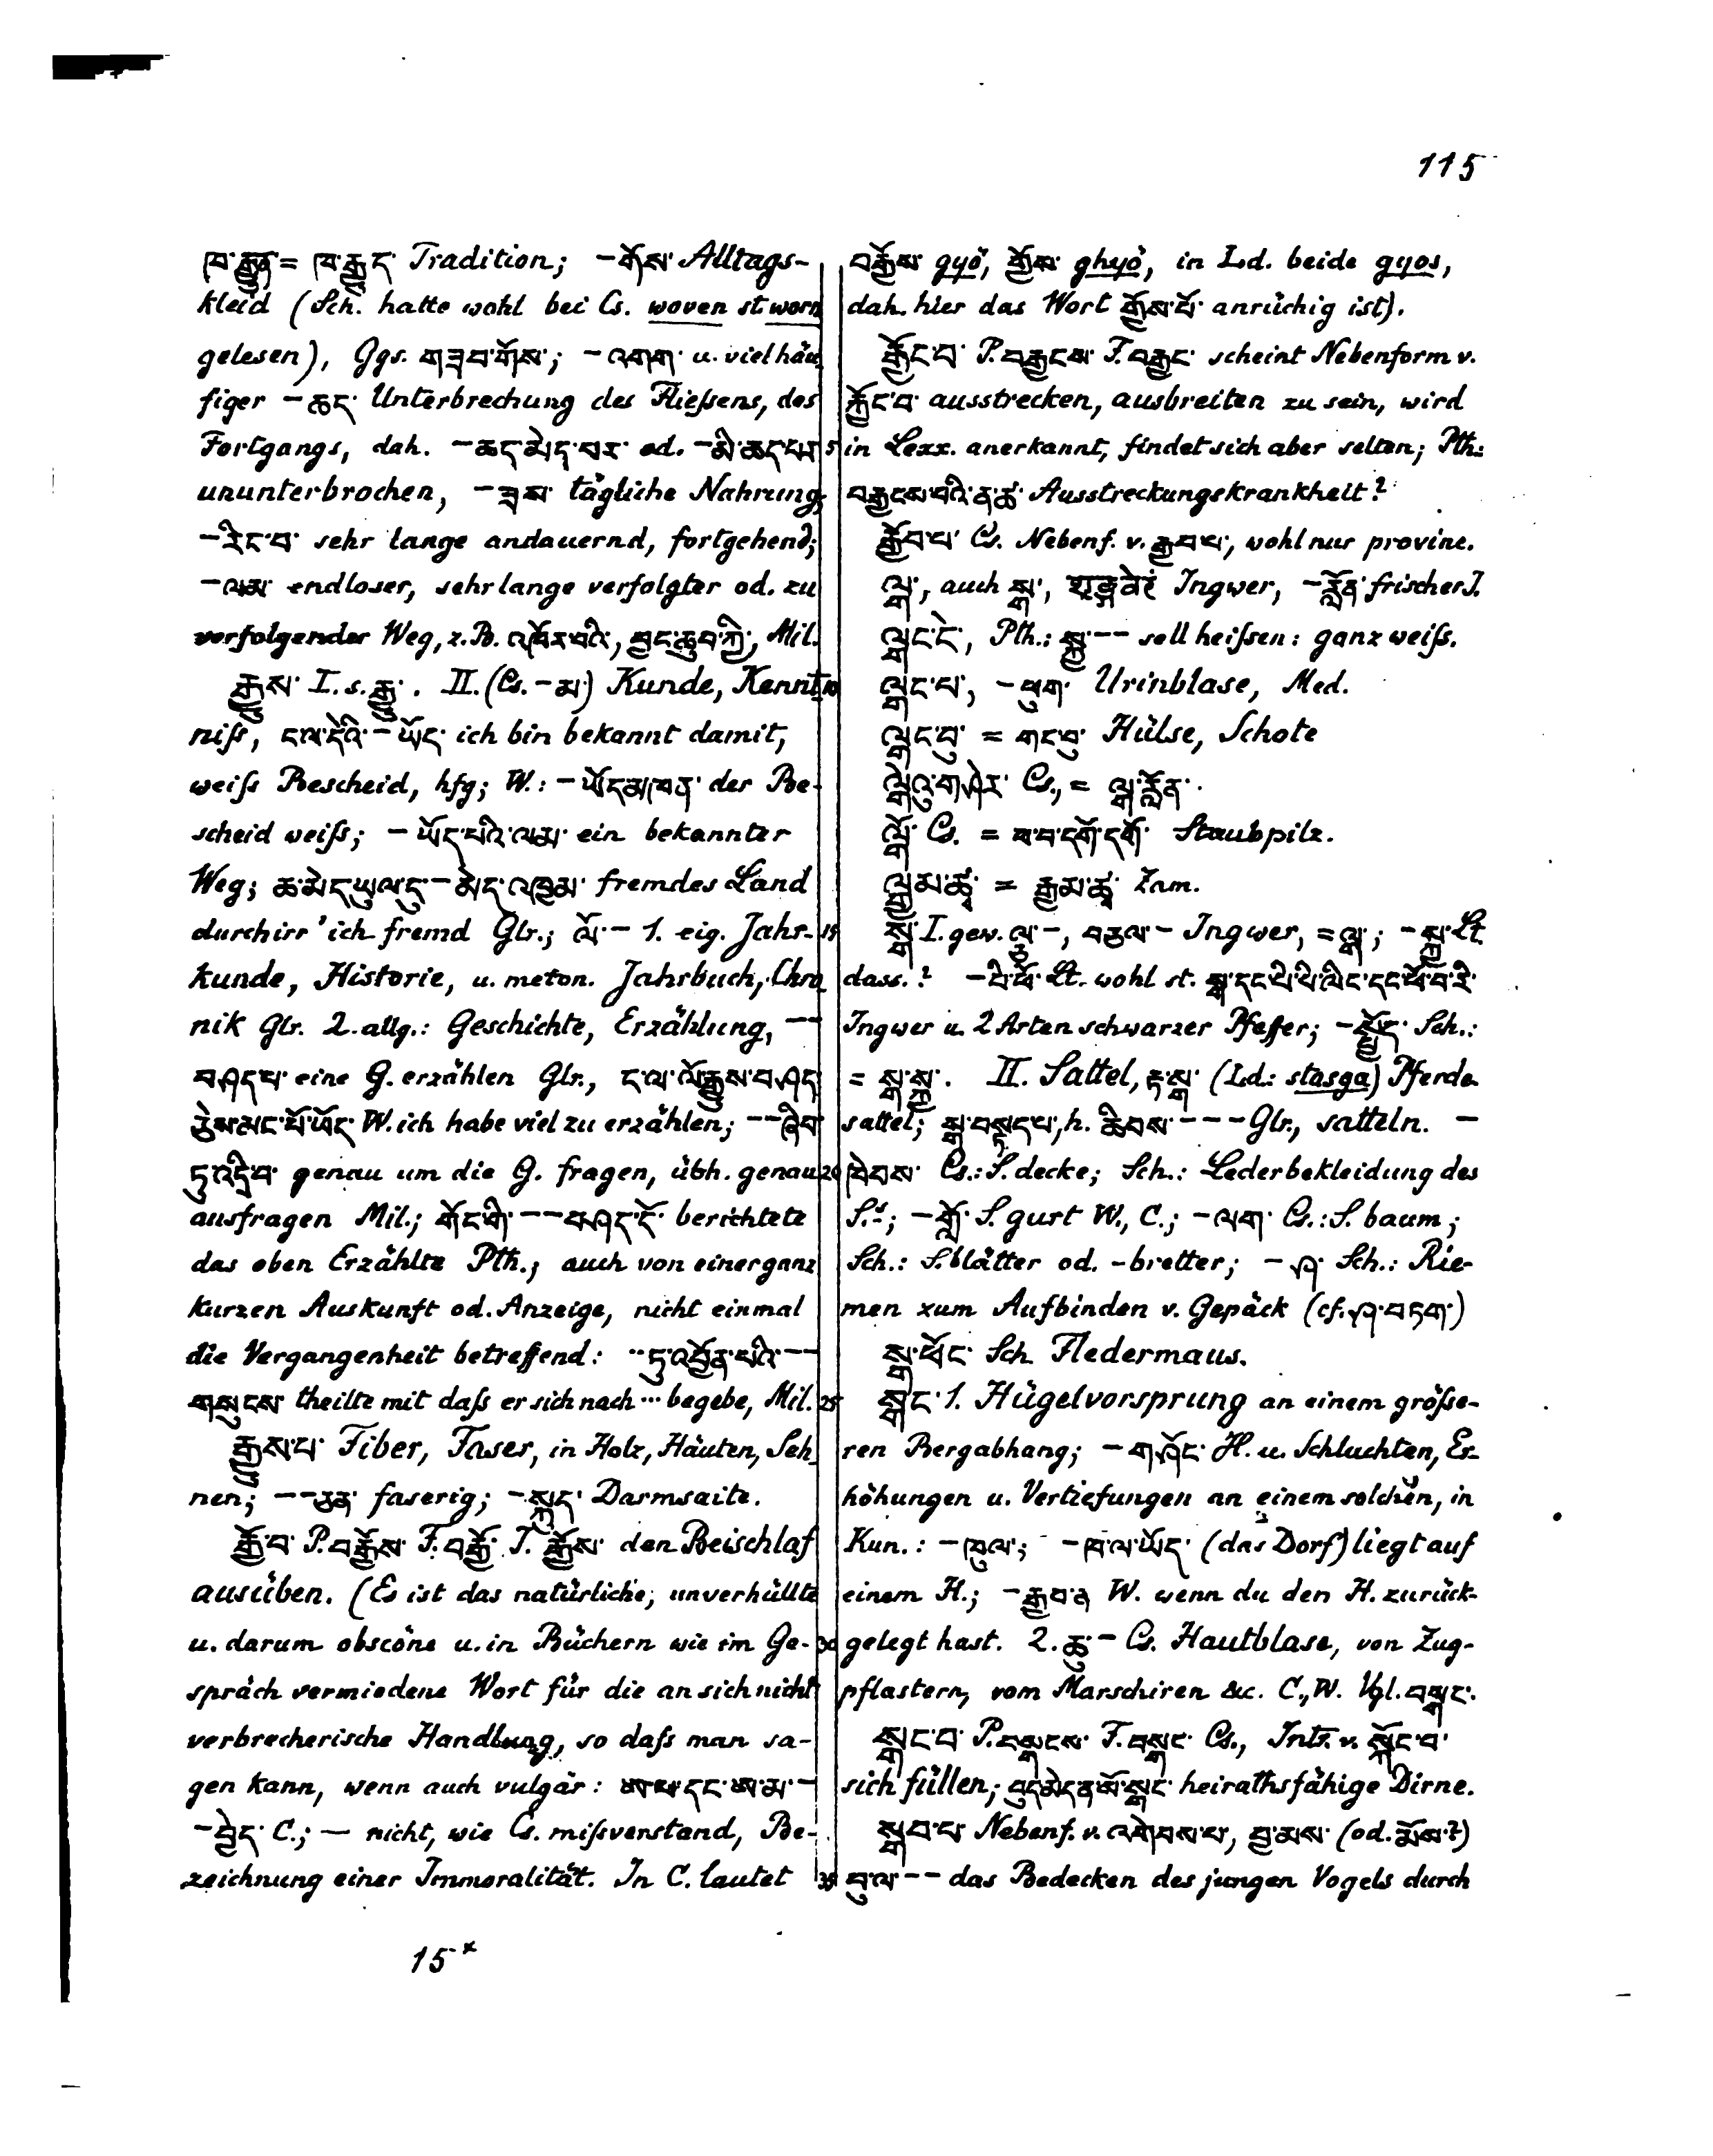 115
ཁ་རྒྱུན = ཁ་རྒྱུད་ Tradition; –གོས་ Alltags-
kleid (Sch. hatte wohl bei Cs. woven st. worn
gelesen), Ggs. གཟབ་གོས་; –འགག་ u. viel häu-
figer –ཆད་ Unterbrechung des Fließens, des
Fortgangs, dah. –ཆད་མེད་པར་ od. –མི་ཆད་པར་ 5
ununterbrochen, –ཟས་ tägliche Nahrung,
–རིང་བ་ sehr lange andauernd, fortgehend;
–ལམ་ endloser, sehr lange verfolgter od. zu
verfolgender Weg, z.B. འཁོར་བའི་, བྱང་ཆུབ་ཀྱི་, Mil.
རྒྱུས་ I. s. རྒྱུ་. II. (Cs. –མ་) Kunde, Kennt- 10
niß, ང་ལ་དེའི་–ཡོད་ ich bin bekannt damit,
weiß Bescheid, hfg; W.: –ཡོད་མཁན་ der Be-
scheid weiß; –ཡོད་པའི་ལམ་ ein bekannter
Weg; ཆ་མེད་ཡུལ་དུ་–མེད་འཁྱམ་ fremdes Land
durchirr' ich fremd Glr.; ལོ་– 1. eig. Jahrs- 15
kunde, Historie, u. meton. Jahrbuch, Chro-
nik Glr. 2. allg.: Geschichte, Erzählung, ––
བཤད་པ་ eine G. erzählen Glr., ང་ལ་ལོ་རྒྱུས་བཤད་
རྩེས་མང་པོ་ཡོད་ W. ich habe viel zu erzählen; ––ཞིབ་
ཏུ་འདྲི་བ་ genau um die G. fragen, übh. genau 20
ausfragen Mil.; གོང་གི་––བཤད་དོ་ berichtete
das oben Erzählte Pth.; auch von einer ganz
kurzen Auskunft od. Anzeige, nicht einmal
die Vergangenheit betreffend: ··ཏུ་འབྱོན་པའི་––
གསུངས་ theilte mit daß er sich nach ··· begebe, Mil. 25
རྒྱུས་པ་ Fiber, Faser, in Holz, Häuten, Seh-
nen; ––ཅན་ faserig; –སྐུད་ Darmsaite.
རྒྱོ་བ་ P. བརྒྱོས་ F. བརྒྱོ་ I. རྒྱོས་ den Beischlaf
ausüben. (Es ist das natürliche, unverhüllte
u. darum obscöne u. in Büchern wie im Ge- 30
spräch vermiedene Wort für die an sich nicht
verbrecherische Handlung, so daß man sa-
gen kann, wenn auch vulgär: ཨ་ཕ་དང་ཨ་མ་–
–བྱེད་ C.; — nicht, wie Cs. mißverstand, Be-
zeichnung einer Immoralität. In C. lautet 35
15*
བརྒྱོས་ gyò, རྒྱོས་ ghyò, in Ld. beide gyos,
dah. hier das Wort རྒྱོས་པོ་ anrüchig ist).
རྒྱོང་བ་ P. བརྒྱངས་ F. བརྒྱང་ scheint Nebenform v.
རྐྱོང་བ་ ausstrecken, ausbreiten zu sein, wird
in Lexx. anerkannt, findet sich aber selten; Pth:
བརྒྱངས་པའི་ན་ཚ་ Ausstreckungskrankheit?
རྒྱོབ་པ་ Cs. Nebenf. v. རྒྱབ་པ་, wohl nur provinc.
ལྒ་, auch སྒ་, Ingwer, –རློན་ frischer I.
ལྒང་ངེ་, Pth.: –– soll heißen: ganz weiß.
ལྒང་པ་, –ཕུག་ Urinblase, Med.
ལྒང་བུ་ = གང་བུ་ Hülse, Schote
ལྒེའུ་གཤེར་ Cs., = ལྒ་རློན་.
ལྒོ་ Cs. = ཕ་བ་དགོ་དགོ་ Staubpilz.
ལྒྱམ་ཚྭ་ = རྒྱམ་ཚྭ་ Zam.
སྒ་ I. gew. ལྕ་–, བཅའ་– Ingwer, = ལྒ་; –སྐྱ་ Lt.
dass.? –པི་ཕོ་ Lt. wohl st. སྒ་དང་པི་པི་ལིང་དང་ཕོ་བ་རི་
Ingwer u. 2 Arten schwarzer Pfeffer; –སྤྱོད་ Sch.:
= སྒ་སྐྱ་. II. Sattel, རྟ་སྒ་ (Ld: stasga) Pferde-
sattel; སྒ་བསྟད་པ་, h. ཆིབས་––– Glr., satteln. –
ཁེབས་ Cs.: S.decke; Sch.: Lederbekleidung des
S.s; –གློ་ S.gurt W., C.; –ལག་ Cs.: S.baum;
Sch.: S.blätter od. –bretter; –ཤ་ Sch.: Rie-
men zum Aufbinden v. Gepäck (cf. ཤ་བཏག་)
སྒ་ཕོང་ Sch. Fledermaus.
སྒང་ 1. Hügelvorsprung an einem größe-
ren Bergabhang; –གཤོང་ H. u. Schluchten, Er-
höhungen u. Vertiefungen an einem solchen, in
Kun.: –ཁུལ་; –ཁ་ལ་ཡོད་ (das Dorf) liegt auf
einem H.; –རྒྱབ་ན་ W. wenn du den H. zurück-
gelegt hast. 2. ཆུ་– Cs. Hautblase, von Zug-
pflastern, vom Marschiren &c. C., W. Vgl. བསྒང་.
སྒང་བ་ P. བསྒངས་ F. བསྒང་ Cs., Intr. v. སྐོང་བ་
sich füllen; བུད་མེད་ན་སོ་སྒང་ heirathsfähige Dirne.
སྒབ་པ་ Nebenf. v. འགེབས་པ་, བྱ་མས་ (od. མོས་?)
བུ་ལ་–– das Bedecken des jungen Vogels durch